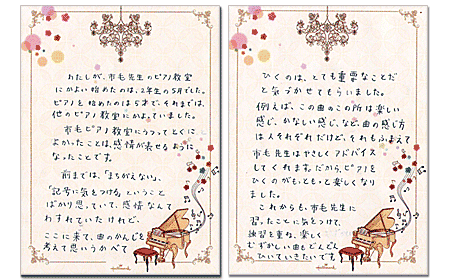 わたしが、市毛先生のピアノ教室
にかよい始めたのは、2年生の5月でした。
ピアノを始めたのは5才で、それまでは、
他のピアノ教室にかよっていました。
市毛ピアノ教室にうつってとくに
よかったことは、感情が表せるように
なったことです。
前までは、「まちがえない」、
「記号に気をつける」ということ
ばかり思っていて、感情なんて
わすれていたけれど、
ここに来て、曲のかんじを
考えて思いうかべて
Hallmark
ひくのは、とても重要なことだ
と気づかせてもらいました。
例えば、この曲のこの所は楽しい
感じ、かなしい感じ、など、曲の感じ方
は人それぞれだけど、それもふまえて
市毛先生はやさしくアドバイス
してくれます。だから、ピアノを
ひくのがもっともっと楽しくなり
ました。
これからも、市毛先生に
習ったことに気をつけて、
練習を重ね、楽しく
むずかしい曲もどんどん
ひいていきたいです。
Hallmark